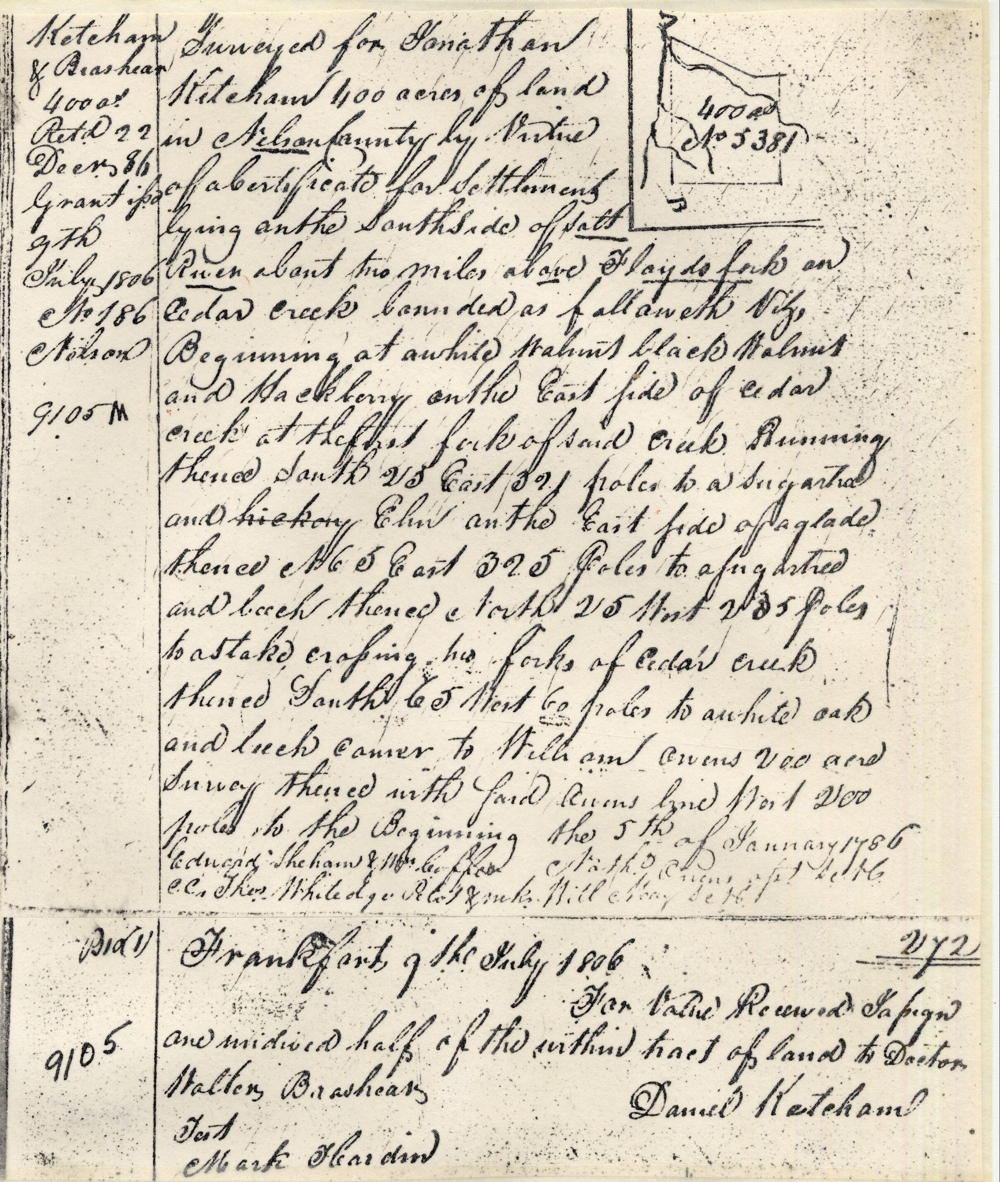 Ketcham
& Brashear
400 as
Retd 22
Decr, 86
Grant isso
9th
July, 1806
No 186
Nelson
9105 M
Surveyed for Jonathan
Ketcham 400 acres of land
in Nelson County by Virtue
of a Certificate for Settlement
lying on the South Side of Salt
River about two miles above Floyds fork on
Cedar creek bounded as followeth Viz,
Beginning at a white Walnut black Walnut
and Hackberry on the East side of Cedar
creek at the first fork of said creek Running
thence South 25 East 321 poles to a Sugartree
and hickory Elm on the East side of a glade
thence N 65 East 325 Poles to a sugartree
and beech thence North 25 West 235 Poles
to a stake crossing two forks of Cedar creek
thence South 65 West 60 poles to a white oak
and beech corner to William Owens 200 acre
Survey thence with said Owens line West 200
poles to the Beginning the 5th of January 1786
Edward Sheham & Wm Nathl Owens
C.C. Thos. Whitedge & mkr. Will May
400 as
No 5381
B
9105
272
Frankfort 9th July 1806
For Value Received I assign
one undivided half of the within tract of land to Doctor
Walter Brashear
Daniel Ketcham
Test
Mark Hardin